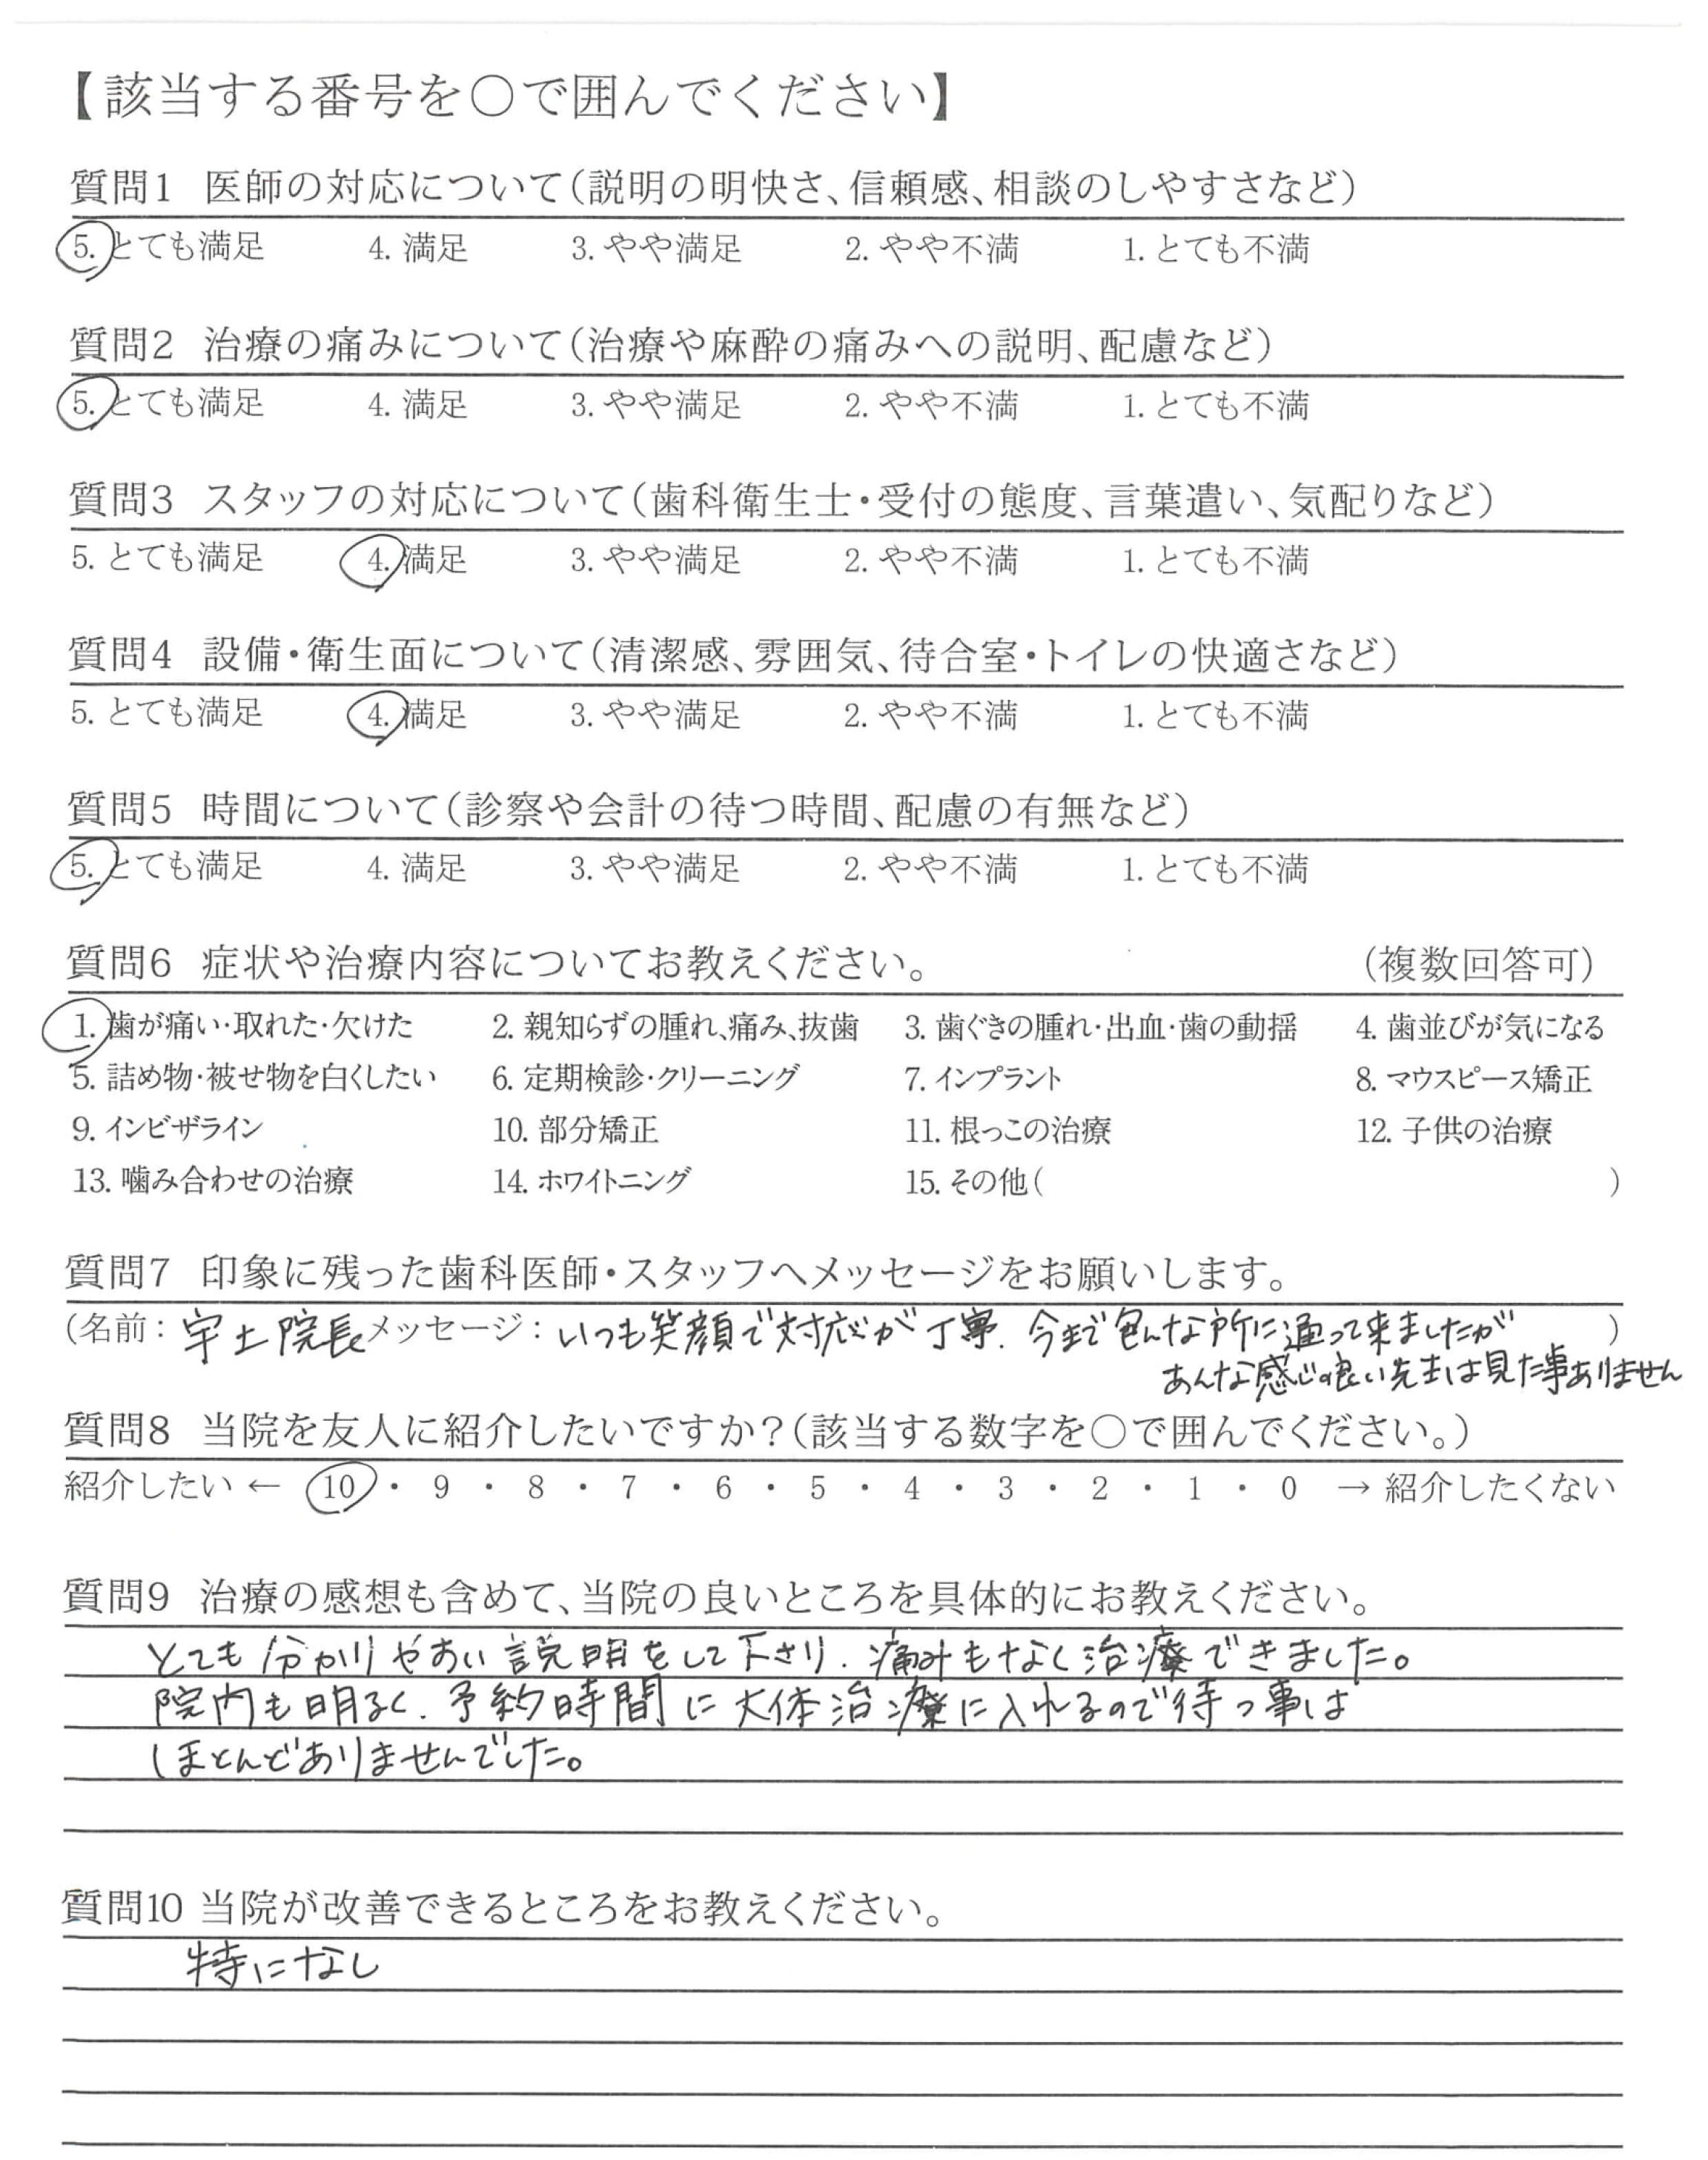 【該当する番号を○で囲んでください】
質問1 医師の対応について(説明の明快さ、信頼感、相談のしやすさなど)
5. とても満足 4. 満足 3. やや満足 2. やや不満 1. とても不満
質問2 治療の痛みについて(治療や麻酔の痛みへの説明、配慮など)
5. とても満足 4. 満足 3. やや満足 2. やや不満 1. とても不満
質問3 スタッフの対応について(歯科衛生士・受付の態度、言葉遣い、気配りなど)
5. とても満足 4. 満足 3. やや満足 2. やや不満 1. とても不満
質問4 設備・衛生面について(清潔感、雰囲気、待合室・トイレの快適さなど)
5. とても満足 4. 満足 3. やや満足 2. やや不満 1. とても不満
質問5 時間について(診察や会計の待つ時間、配慮の有無など)
5. とても満足 4. 満足 3. やや満足 2. やや不満 1. とても不満
質問6 症状や治療内容についてお教えください。 (複数回答可)
1. 歯が痛い・取れた・欠けた 2. 親知らずの腫れ、痛み、抜歯 3. 歯ぐきの腫れ・出血・歯の動揺 4. 歯並びが気になる
5. 詰め物・被せ物を白くしたい 6. 定期検診・クリーニング 7. インプラント 8. マウスピース矯正
9. インビザライン 10. 部分矯正 11. 根っこの治療 12. 子供の治療
13. 噛み合わせの治療 14. ホワイトニング 15. その他( )
質問7 印象に残った歯科医師・スタッフへメッセージをお願いします。
(名前: 宇土院長 メッセージ: いつも笑顔で対応が丁寧. 今まで色んな所に通って来ましたが )
あんな感じの良い先生は見た事ありません
質問8 当院を友人に紹介したいですか?(該当する数字を○で囲んでください。)
紹介したい ← 10 ・ 9 ・ 8 ・ 7 ・ 6 ・ 5 ・ 4 ・ 3 ・ 2 ・ 1 ・ 0 → 紹介したくない
質問9 治療の感想も含めて、当院の良いところを具体的にお教えください。
とても分かりやすい説明をして下さり. 痛みもなく治療できました。
院内も明るく. 予約時間に大体治療に入れるので待つ事は
ほとんどありませんでした。
質問10 当院が改善できるところをお教えください。
特になし